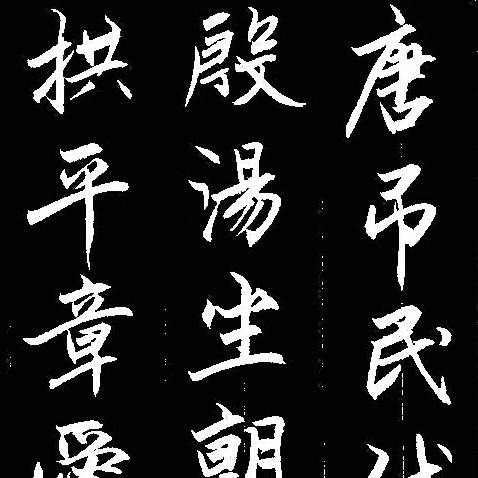 唐吊民伐
殷湯坐朝
拱平章愛